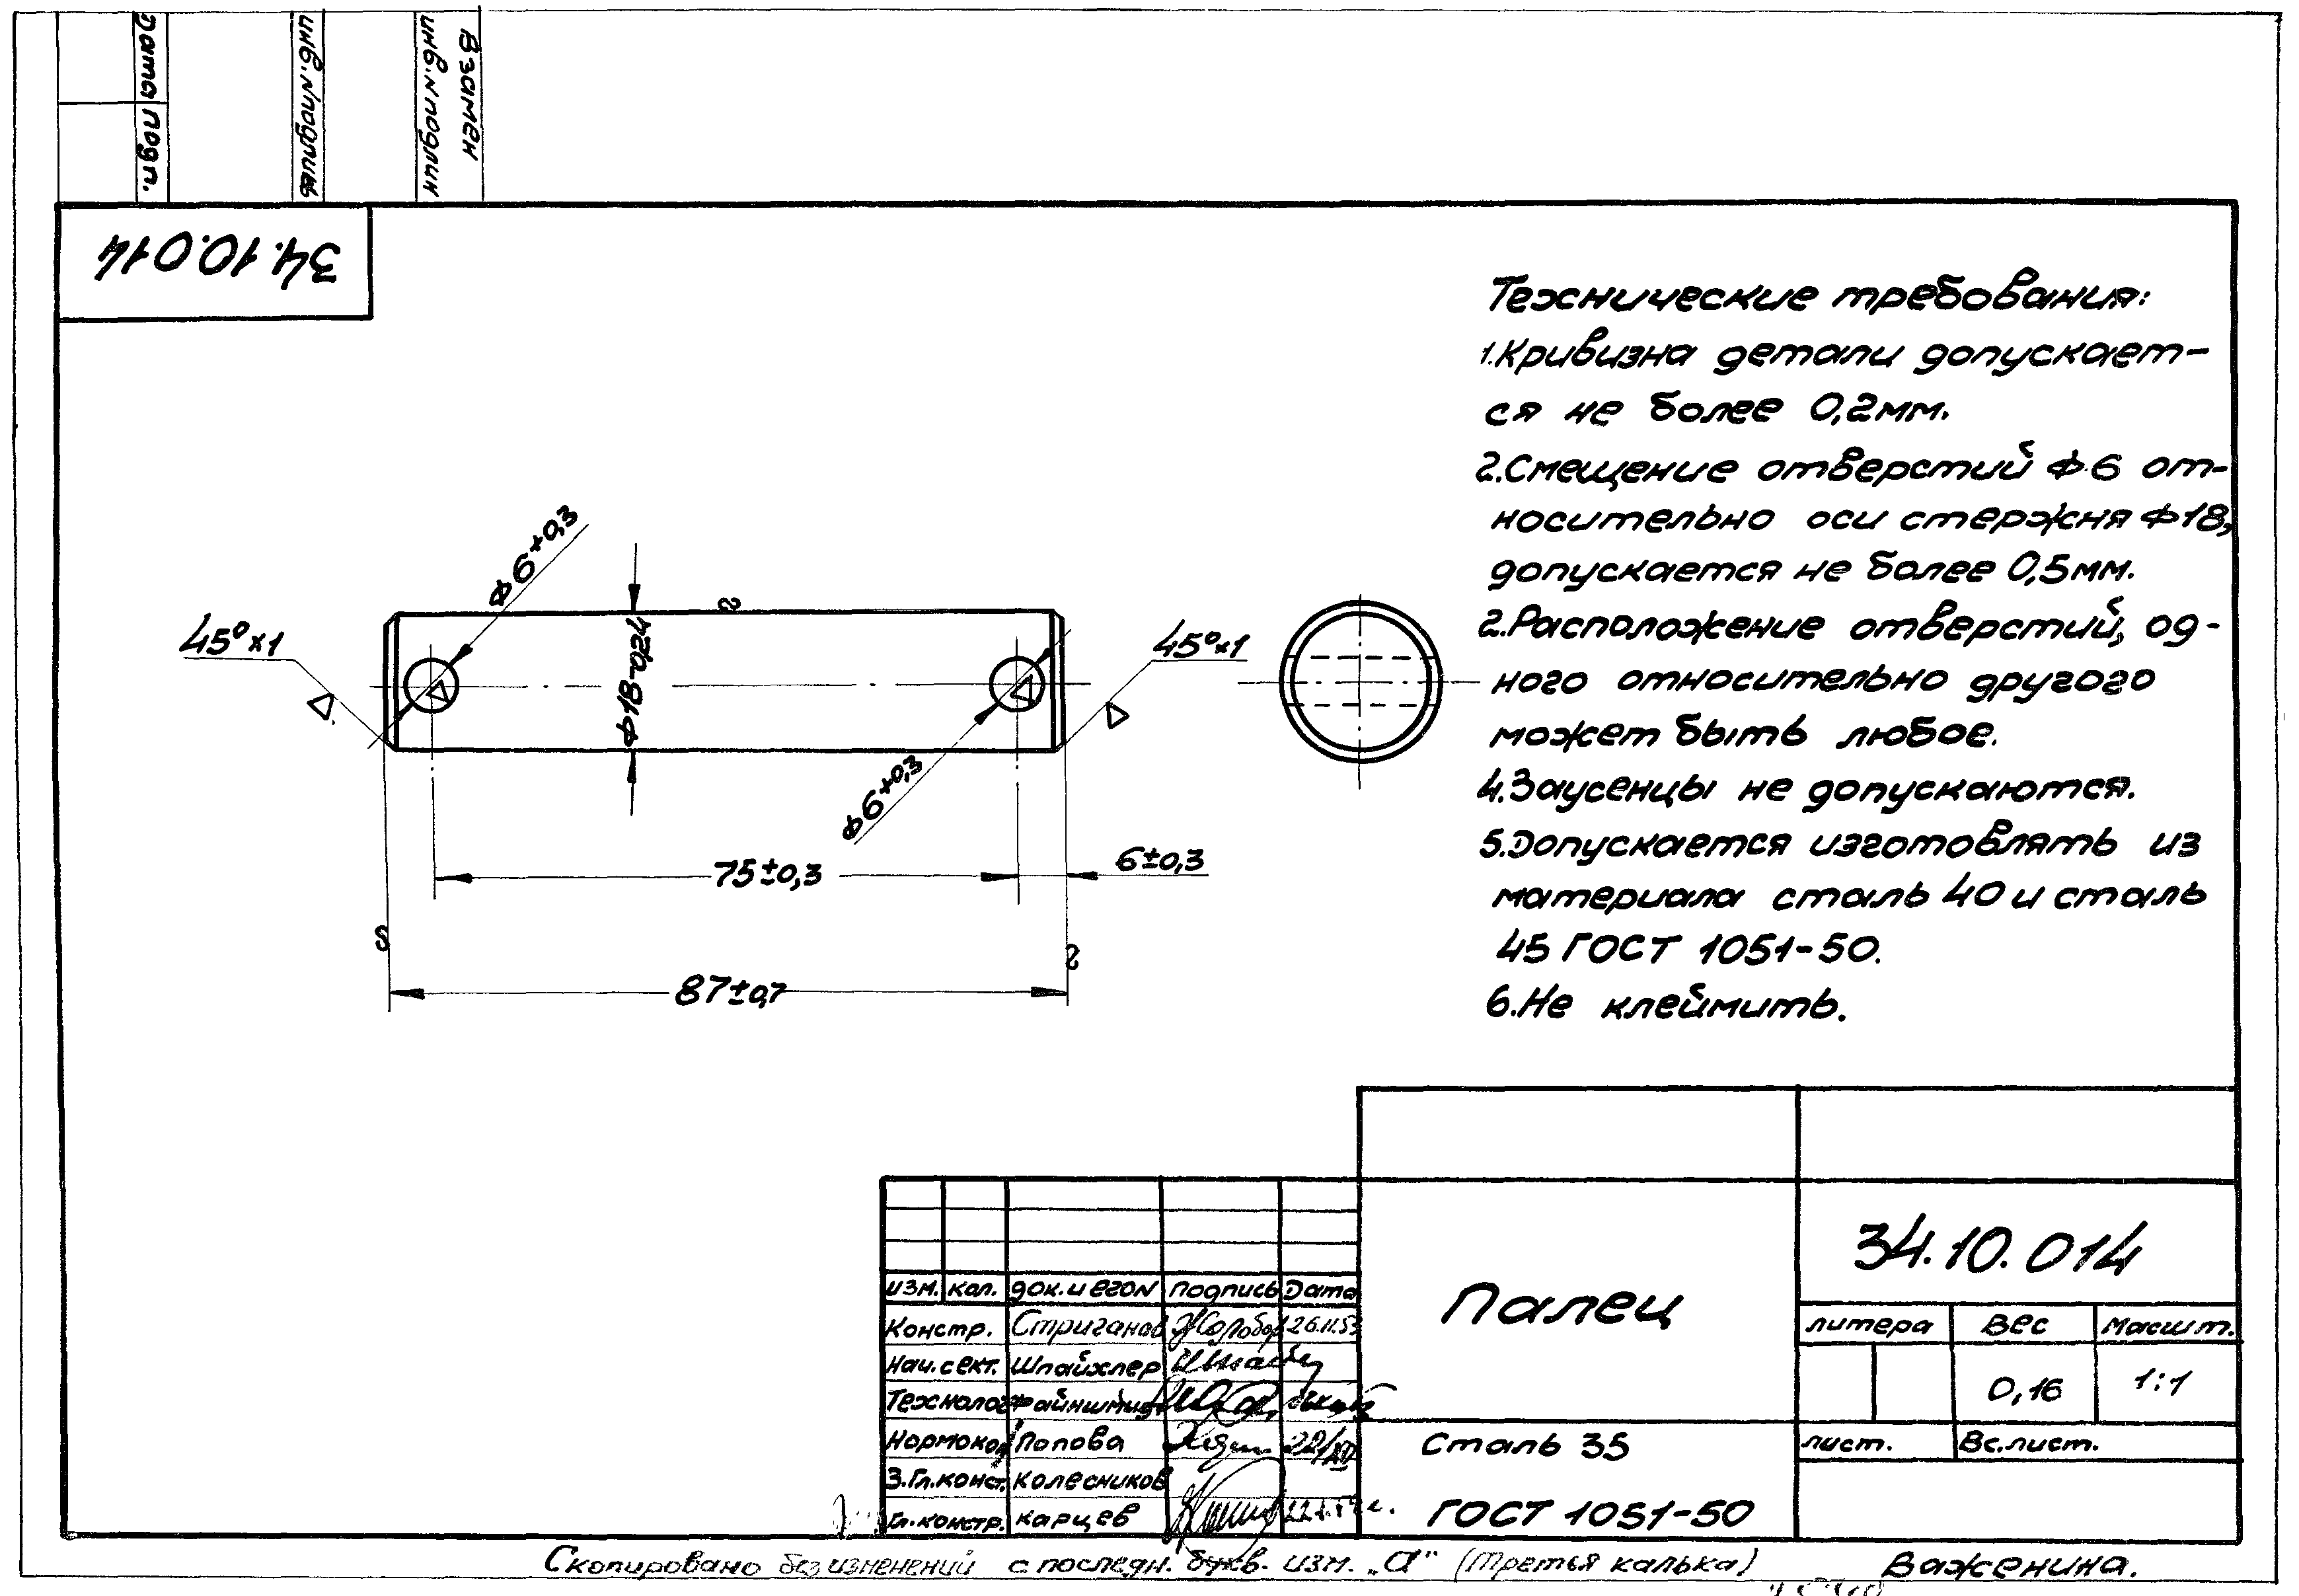 Взамен
инв.№подлин
инв.№подлин
Дата
Подп.
34.10.014
Технические требования:
1.Кривизна детали допускает-
ся не более 0,2мм.
2.Смещение отверстий Ф6 от-
носительно оси стержня Ф18,
допускается не более 0,5мм.
2.Расположение отверстий, од-
ного относительно другого
может быть любое.
4.Заусенцы не допускаются.
5.Допускается изготовлять из
материала сталь 40 и сталь
45 ГОСТ 1051-50.
6.Не клеймить.
ф6+0,3
45°×1
ф18-0,24
45°×1
ф6+0,3
75±0,3
6±0,3
87±0,7
изм. кол. док. и его№ подпись Дата
Констр. Стриганов 26.11.53
Нач.сект. Шпайхлер
Технолог Файншмидт
Нормокон Попова 22/XII
З.Гл.конст. Колесников
Гл.констр. Карцев
Палец
Сталь 35
ГОСТ 1051-50
34.10.014
литера Вес Масшт.
0,16 1:1
лист. Вс.лист.
Скопировано без изменений с последн. букв. изм. „а" (третья калька) Важенина.